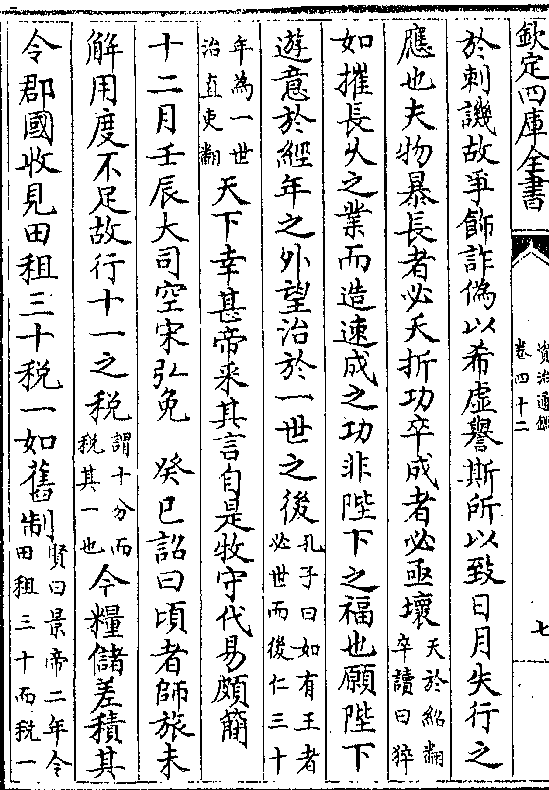 欽定四庫全書
資治通鑑
卷四十二
七
於刺譏故爭飾詐偽以希虛譽斯所以致日月失行之
應也夫物暴長者必夭折功卒成者必亟壞
夭於紹翻
卒讀曰猝
如摧長久之業而造速成之功非陛下之福也願陛下
遊意於經年之外望治於一世之後
孔子曰如有王者
必世而後仁三十
年為一世
治直吏翻
天下幸甚帝采其言自是牧守代易頗簡
十二月壬辰大司空宋弘免 癸巳詔曰頃者師旅未
解用度不足故行十一之稅
謂十分而
稅其一也
今糧儲差積其
令郡國收見田租三十稅一如舊制
賢曰景帝二年令
田租三十而稅一